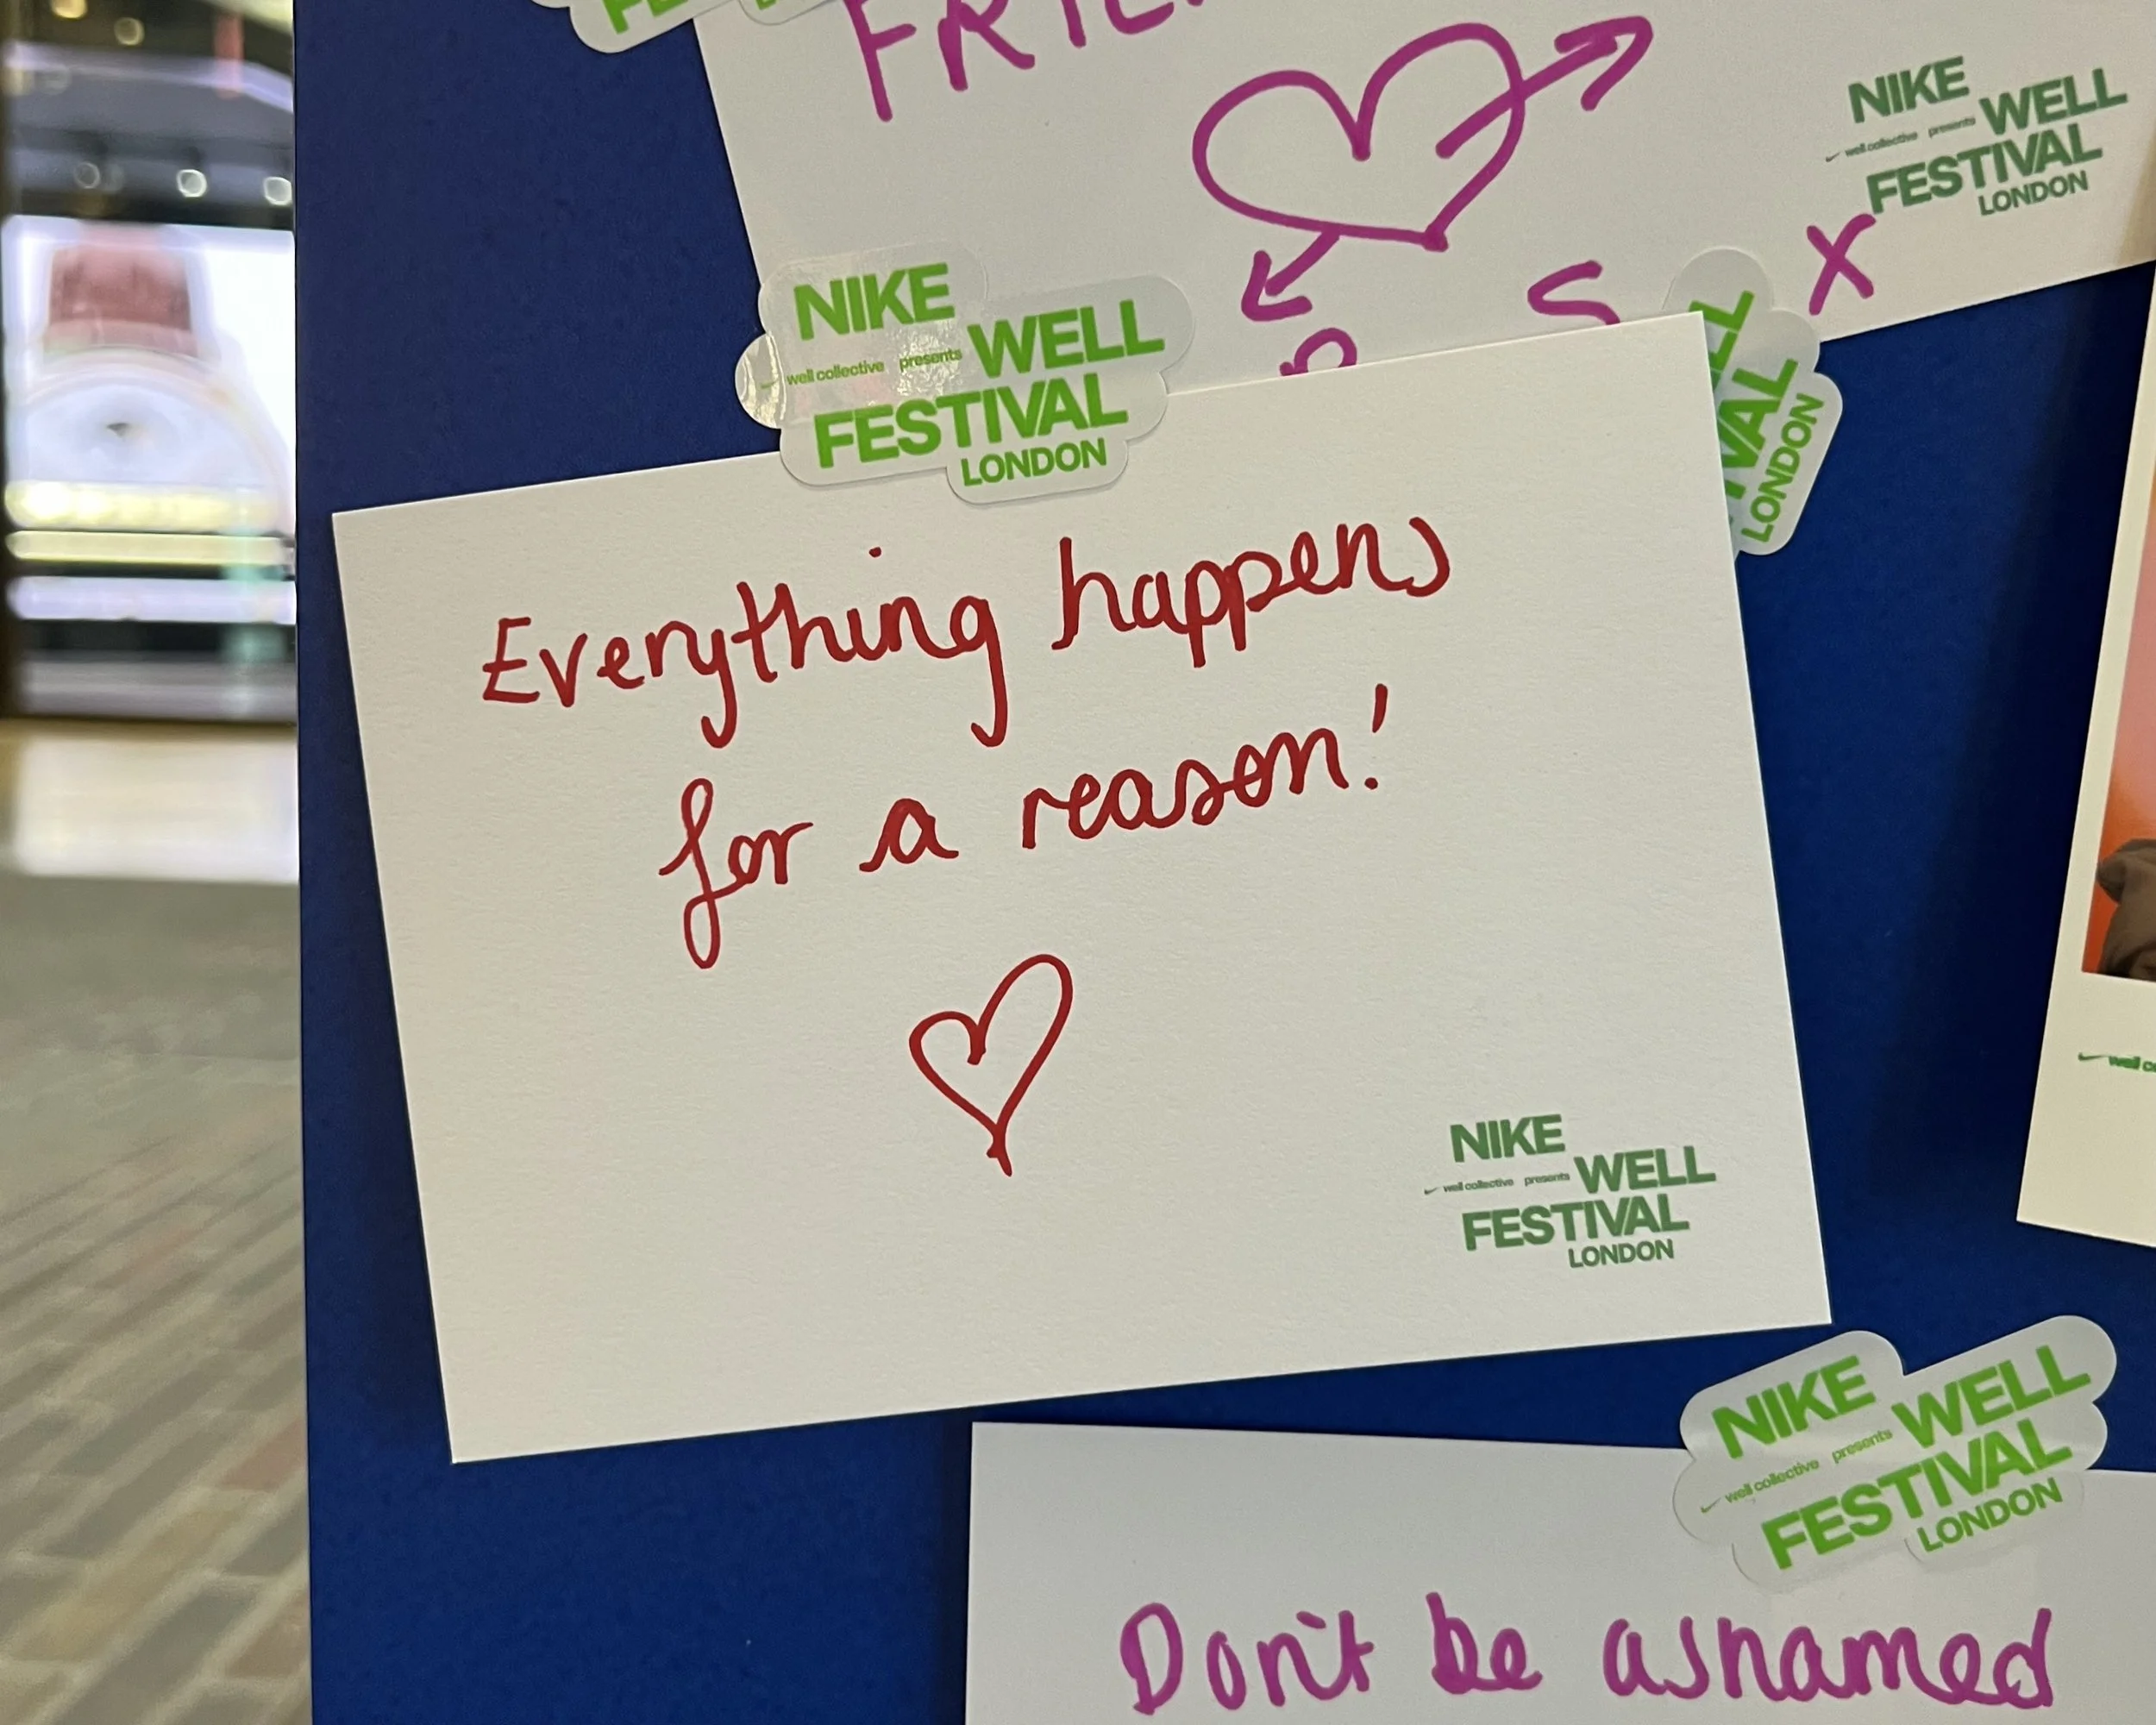 NIKE
well collective presents WELL
FESTIVAL
LONDON
X
NIKE
well collective presents WELL
FESTIVAL
LONDON
LONDON
Everything happens
for a reason!
NIKE
well collective presents WELL
FESTIVAL
LONDON
NIKE
well collective presents WELL
FESTIVAL
LONDON
Don't be ashamed